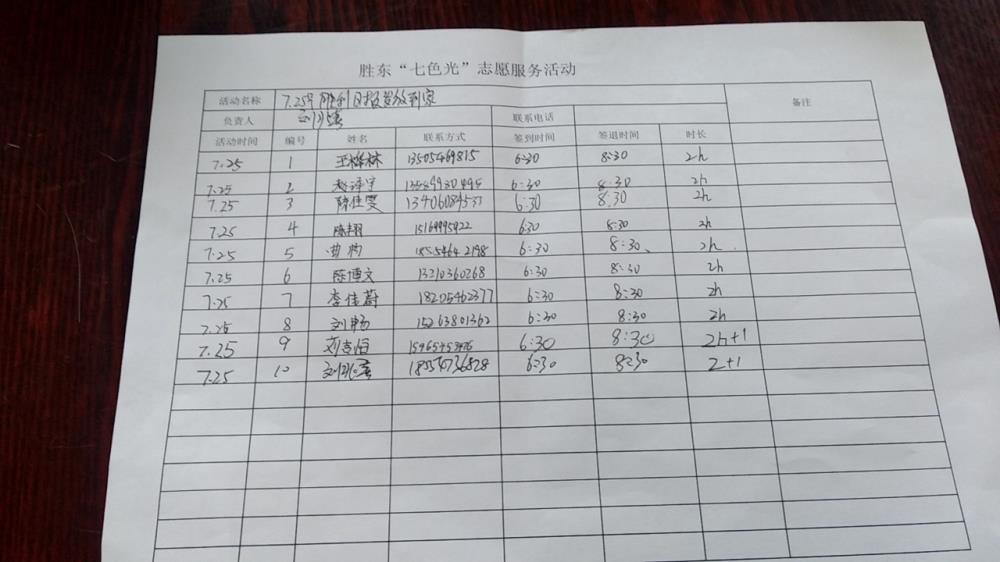 胜东“七色光”志愿服务活动
活动名称 7.25号胜利日报发放到家 备注
负责人 联系电话
活动时间 编号 姓名 联系方式 签到时间 签退时间 时长
7.25 1 13505469815 6:30 8:30 2h
7.25 2 6:30 8:30 2h
7.25 3 陈佳雯 6:30 8.30 2h
7.25 4 陈翔 6:30 8:30 2h
7.25 5 6:30 8:30 2h
7.25 6 陈博文 13210360268 6:30 8:30 2h
7.25 7 李佳蔚 18205462377 6:30 8:30 2h
7.25 8 刘畅 15263801362 6:30 8:30 2h
7.25 9 6:30 8:30 2h+1
7.25 10 6:30 8:30 2+1